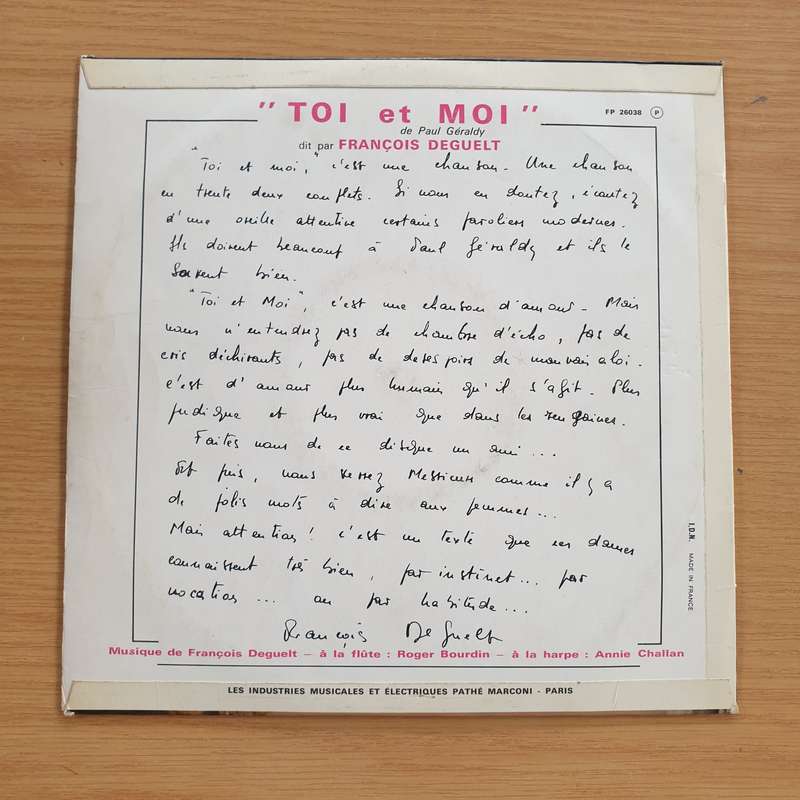 " TOI et MOI "
FP 26038 P
de Paul Géraldy
dit par FRANÇOIS DEGUELT
"Toi et moi," c'est une chanson. Une chanson
en trente deux couplets. Si vous en doutez, écoutez
d'une oreille attentive certains paroliers modernes.
Ils doivent beaucoup à Paul Géraldy et ils le
savent bien.
"Toi et Moi", c'est une chanson d'amour. Mais
vous n'entendrez pas de chambre d'écho, pas de
cris déchirants, pas de desespoirs de mauvais aloi.
c'est d'amour plus humain qu'il s'agit. Plus
pudique et plus vrai que dans les rengaines.
Faites vous de ce disque un ami...
Et puis, vous verrez Messieurs comme il y a
de jolis mots à dire aux femmes...
Mais attention! c'est un texte que ces dames
connaissent très bien, par instinct... par
vocation... ou par habitude...
François Deguelt
I.D.N. MADE IN FRANCE
Musique de François Deguelt – à la flûte : Roger Bourdin – à la harpe : Annie Challan
LES INDUSTRIES MUSICALES ET ÉLECTRIQUES PATHÉ MARCONI - PARIS